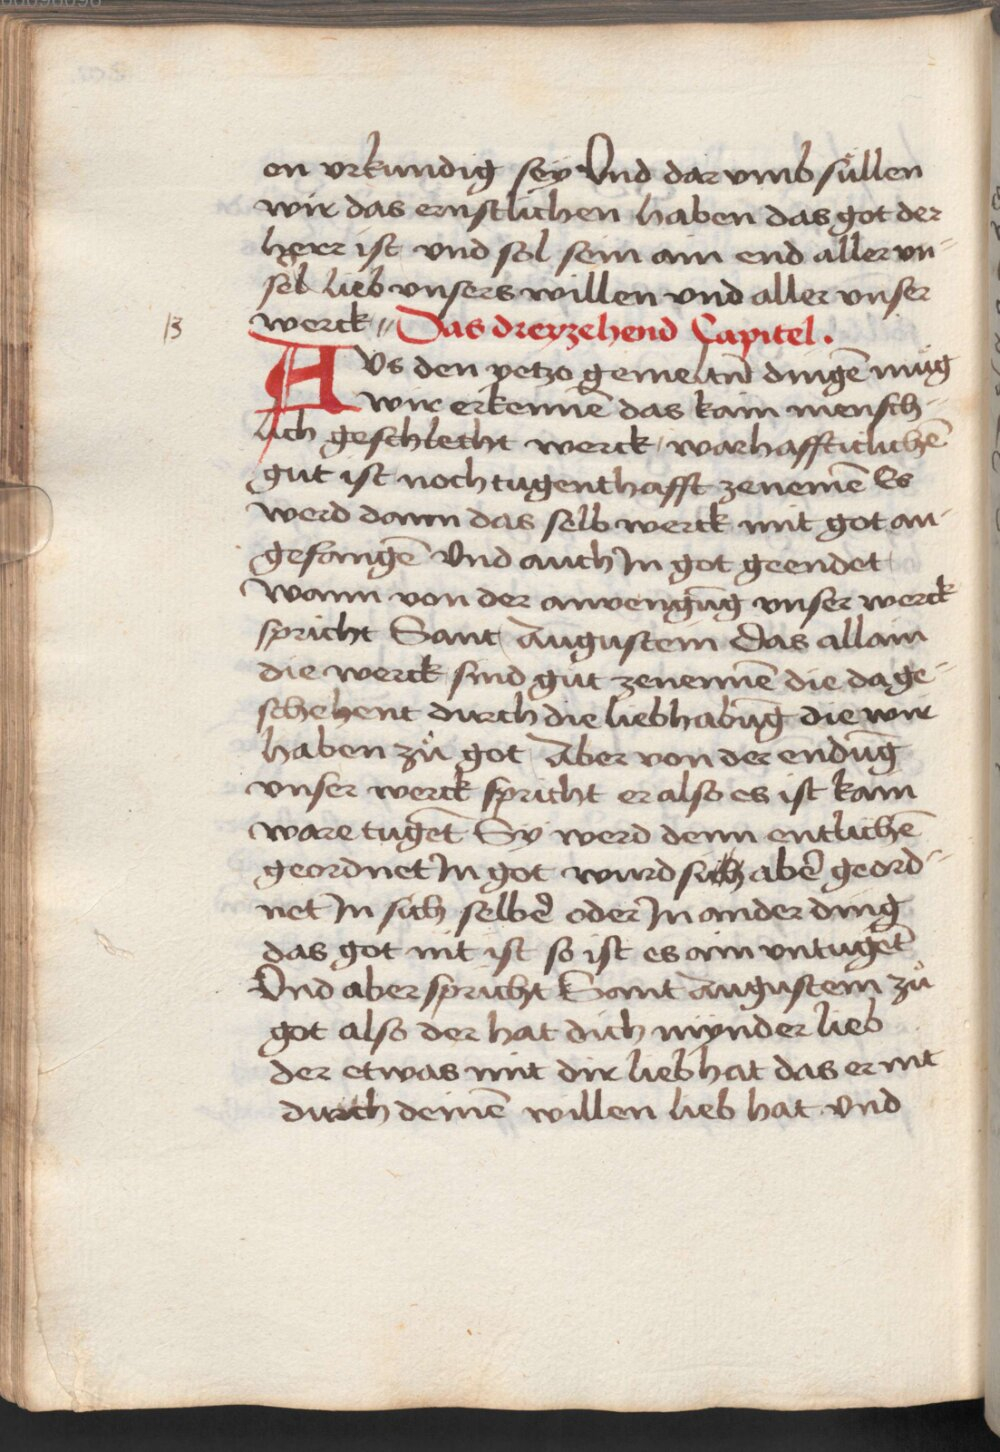 en vrkundig sey Vnd dar vmb süllen
wir das ernstlichen haben das got der
herr ist vnd sol sein ain end aller vn-
ser lieb vnsers willen vnd aller vnser
werck // Das dreyzehend Capitel.
13
AVs den yetzo gemeltn̄ dingē müg
wir erkennē das kain mensch-
lich geschlecht werck warhaffticlichē
gut ist noch tugenthafft zenemē Es
werd dann das selb werck mit got an-
gefangē Vnd auch In got geendet
Wann von der anvengūg vnser werck
spricht Sant Augustein Das allain
die werck sind gut zenennē die da ge-
schehent durch die liebhabūg die wir
haben zů got Aber von der endūg
vnser werck spricht er also es ist kain
ware tugēt Sy werd denn entlichē
geordnet In got wurd sich abeˀ geord-
net In sich selbeˀ oder In ander ding
das got nit ist so ist es ain vntugēt
Vnd aber spricht Sant Augustein zů
got also der hat dich mynder lieb
der etwas mit dir lieb hat das er nit
durch deinē willen lieb hat Vnd